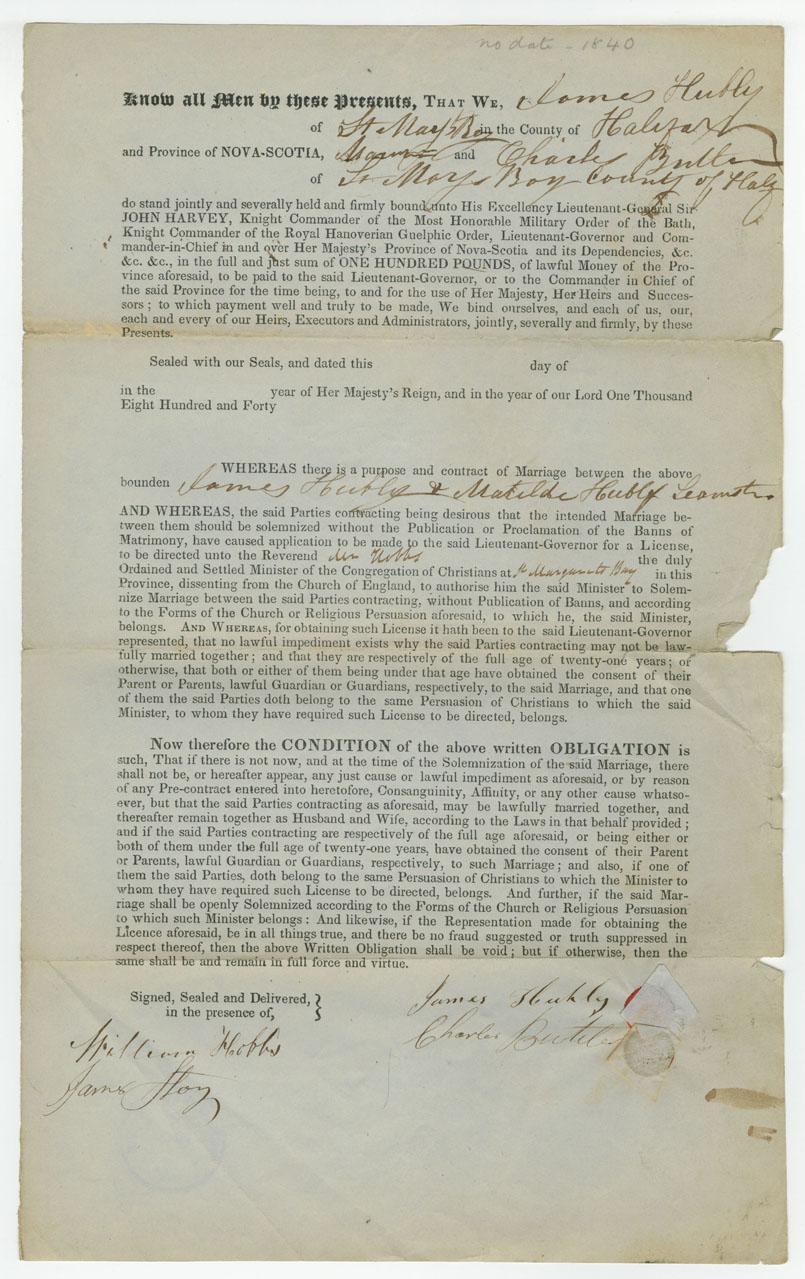 no date - 1840
Know all Men by these Presents, THAT WE, James Hubly
of St Marys Bay in the County of Halifax
and Province of NOVA-SCOTIA, and Charles Butler
of St Marys Bay County of Halfx
do stand jointly and severally held and firmly bound unto His Excellency Lieutenant-General Sir
JOHN HARVEY, Knight Commander of the Most Honorable Military Order of the Bath,
Knight Commander of the Royal Hanoverian Guelphic Order, Lieutenant-Governor and Com-
mander-in-Chief in and over Her Majesty's Province of Nova-Scotia and its Dependencies, &c.
&c. &c., in the full and just sum of ONE HUNDRED POUNDS, of lawful Money of the Pro-
vince aforesaid, to be paid to the said Lieutenant-Governor, or to the Commander in Chief of
the said Province for the time being, to and for the use of Her Majesty, Her Heirs and Succes-
sors; to which payment well and truly to be made, We bind ourselves, and each of us, our,
each and every of our Heirs, Executors and Administrators, jointly, severally and firmly, by these
Presents.
Sealed with our Seals, and dated this day of
in the year of Her Majesty's Reign, and in the year of our Lord One Thousand
Eight Hundred and Forty
WHEREAS there is a purpose and contract of Marriage between the above
bounden James Hubly & Matilde Hubly
AND WHEREAS, the said Parties contracting being desirous that the intended Marriage be-
tween them should be solemnized without the Publication or Proclamation of the Banns of
Matrimony, have caused application to be made to the said Lieutenant-Governor for a License,
to be directed unto the Reverend Hobbs the duly
Ordained and Settled Minister of the Congregation of Christians at St Margarets Bay in this
Province, dissenting from the Church of England, to authorise him the said Minister to Solem-
nize Marriage between the said Parties contracting, without Publication of Banns, and according
to the Forms of the Church or Religious Persuasion aforesaid, to which he, the said Minister,
belongs. AND WHEREAS, for obtaining such License it hath been to the said Lieutenant-Governor
represented, that no lawful impediment exists why the said Parties contracting may not be law-
fully married together; and that they are respectively of the full age of twenty-one years; or
otherwise, that both or either of them being under that age have obtained the consent of their
Parent or Parents, lawful Guardian or Guardians, respectively, to the said Marriage, and that one
of them the said Parties doth belong to the same Persuasion of Christians to which the said
Minister, to whom they have required such License to be directed, belongs.
Now therefore the CONDITION of the above written OBLIGATION is
such, That if there is not now, and at the time of the Solemnization of the said Marriage, there
shall not be, or hereafter appear, any just cause or lawful impediment as aforesaid, or by reason
of any Pre-contract entered into heretofore, Consanguinity, Affinity, or any other cause whatso-
ever, but that the said Parties contracting as aforesaid, may be lawfully married together, and
thereafter remain together as Husband and Wife, according to the Laws in that behalf provided;
and if the said Parties contracting are respectively of the full age aforesaid, or being either or
both of them under the full age of twenty-one years, have obtained the consent of their Parent
or Parents, lawful Guardian or Guardians, respectively, to such Marriage; and also, if one of
them the said Parties, doth belong to the same Persuasion of Christians to which the Minister to
whom they have required such License to be directed, belongs. And further, if the said Mar-
riage shall be openly Solemnized according to the Forms of the Church or Religious Persuasion
to which such Minister belongs: And likewise, if the Representation made for obtaining the
Licence aforesaid, be in all things true, and there be no fraud suggested or truth suppressed in
respect thereof, then the above Written Obligation shall be void; but if otherwise, then the
same shall be and remain in full force and virtue.
Signed, Sealed and Delivered,
in the presence of,
James Hubly
Charles
William Hobbs
James